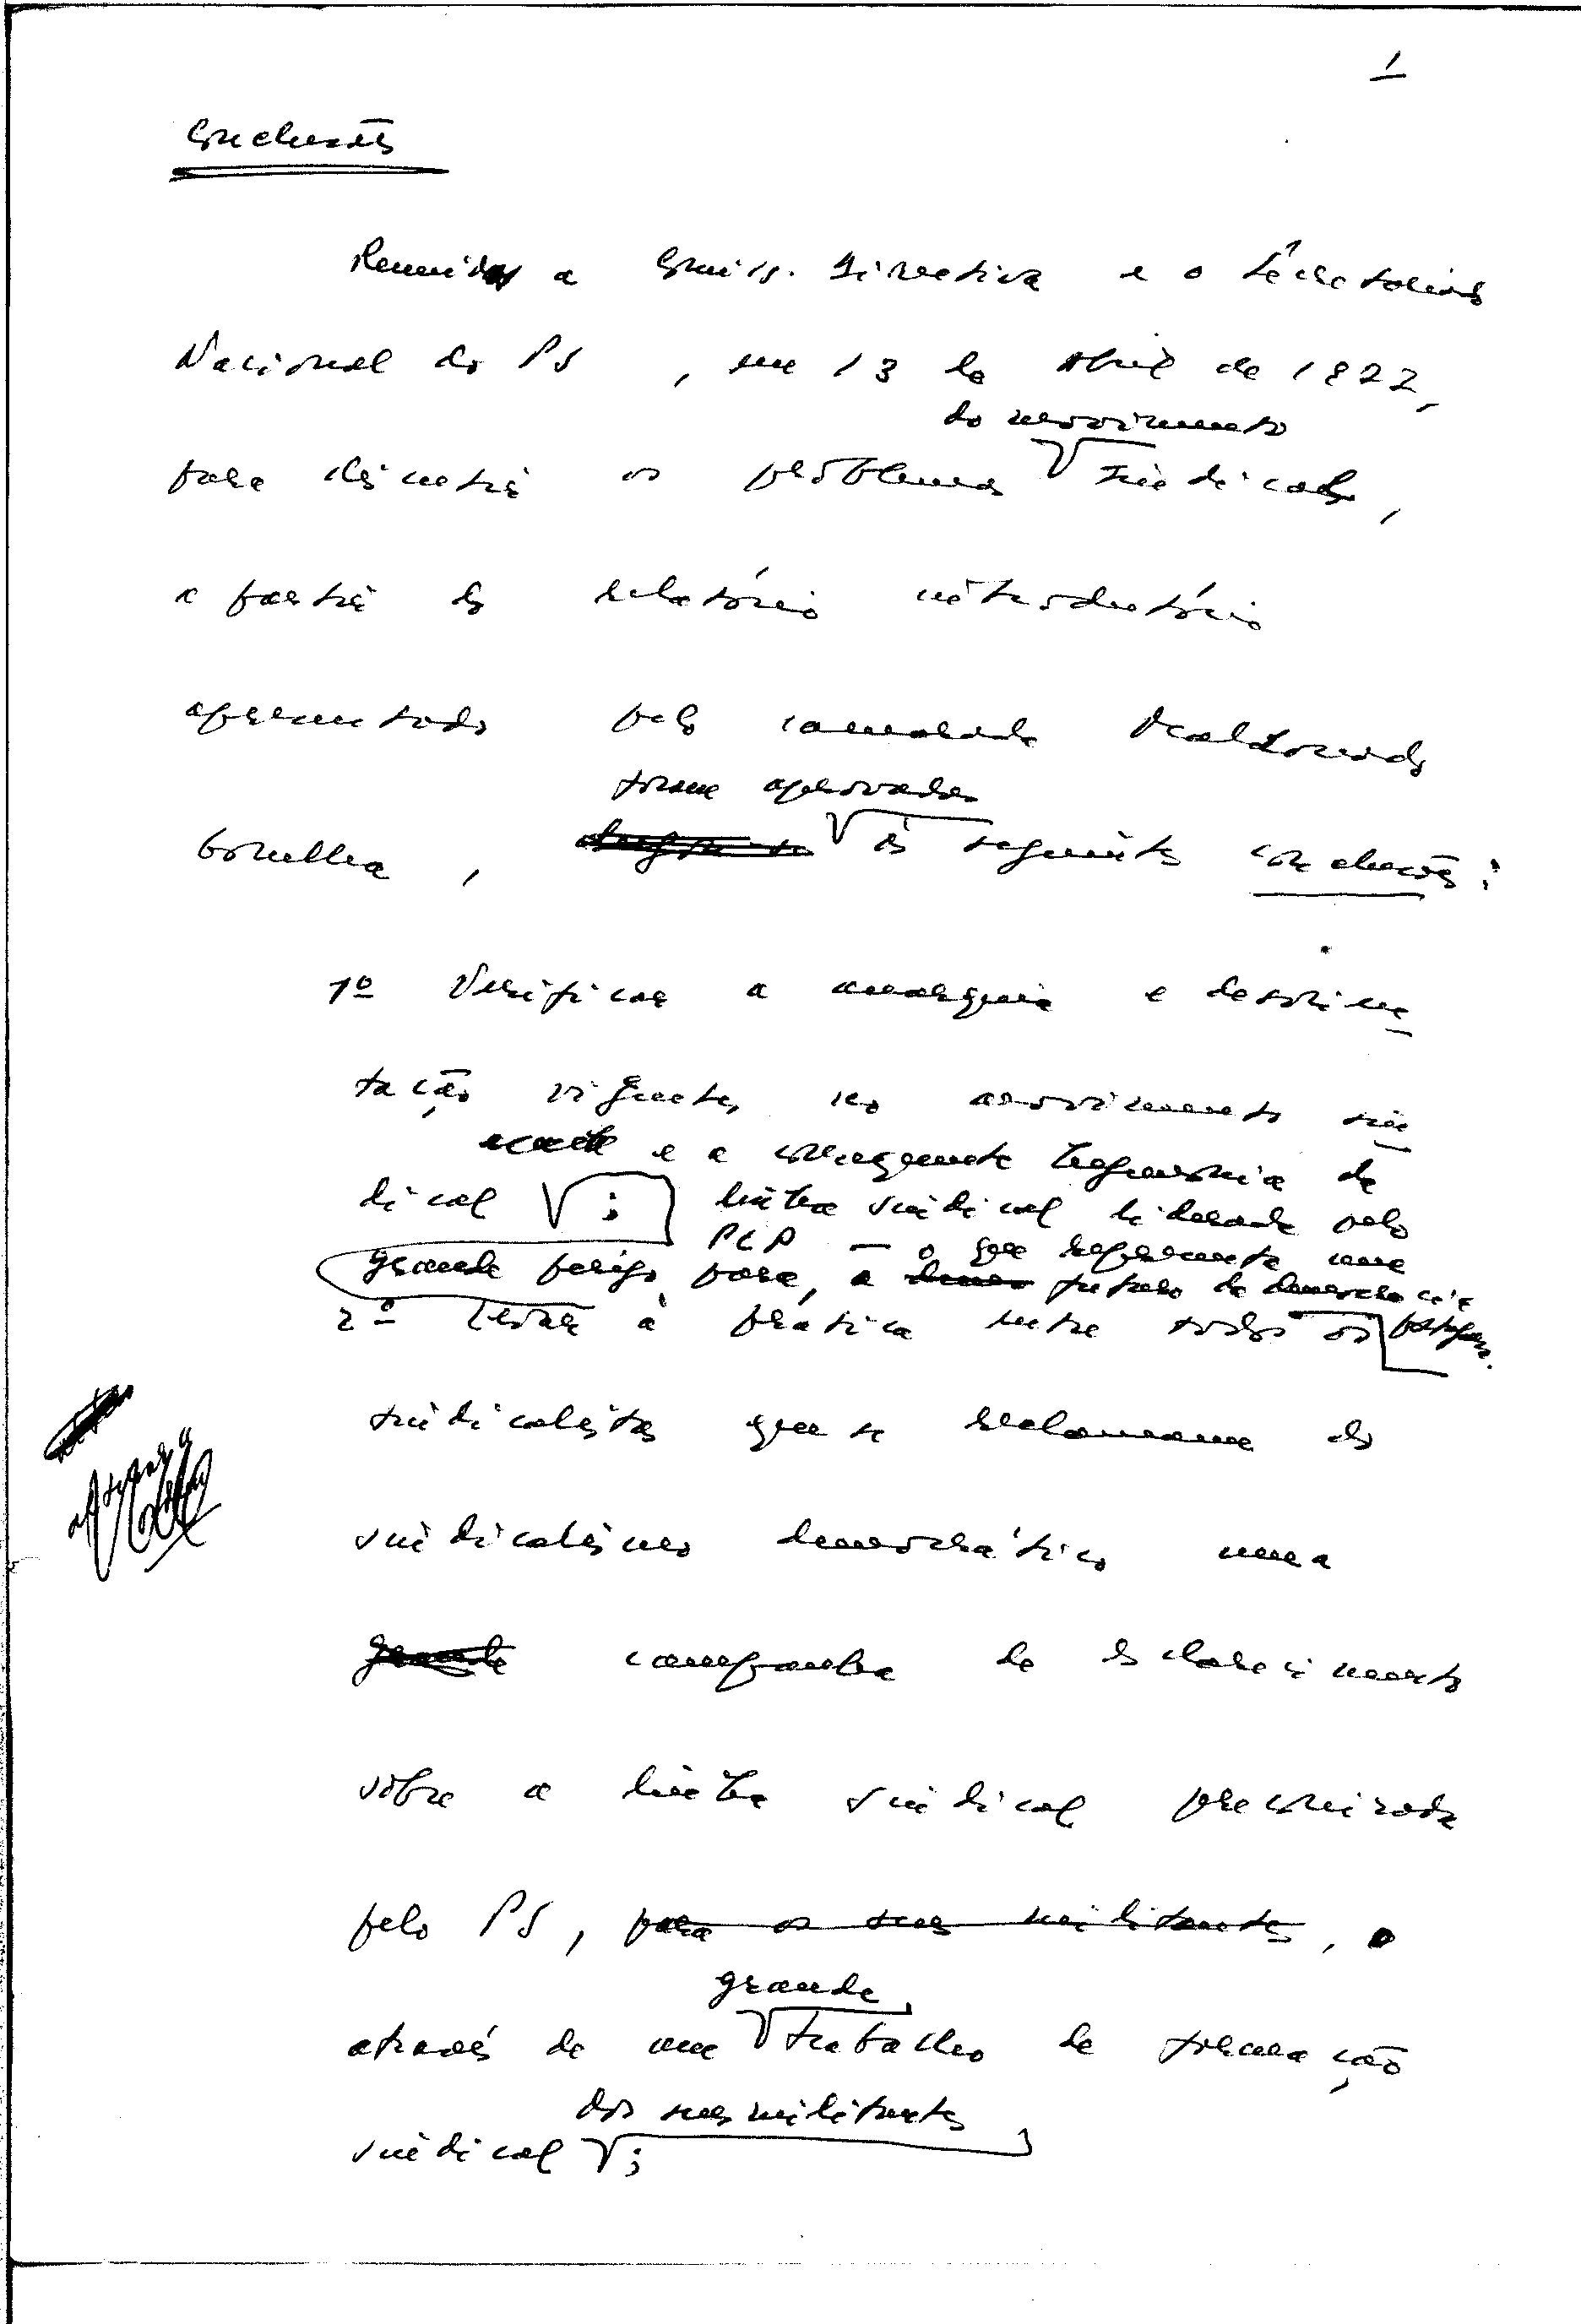 1
Conclusões
Reunidos a Comiss. Directiva e o Secretariado
Nacional do PS, em 13 de Abril de 1977,
do movimento
para discutir os problemas sindical,
a partir do relatório introdutório
apresentado pelo camarada
foram aprovadas
as seguintes conclusões:
1º Verificar a anarquia e desorien
tação vigentes no movimento sin
e a consequente hegemonia da
dical ; linha sindical liderada pelo
PCP — o que representa um
grande perigo para, o futuro da democracia
2º Levar à prática entre todos os portugu.
sindicalistas que se reclamam do
sindicalismo democrático uma
grande campanha de esclarecimento
sobre a linha sindical preconizada
pelo PS, para os seus militantes,
grande
através de um trabalho de formação
dos seus militantes
sindical ;